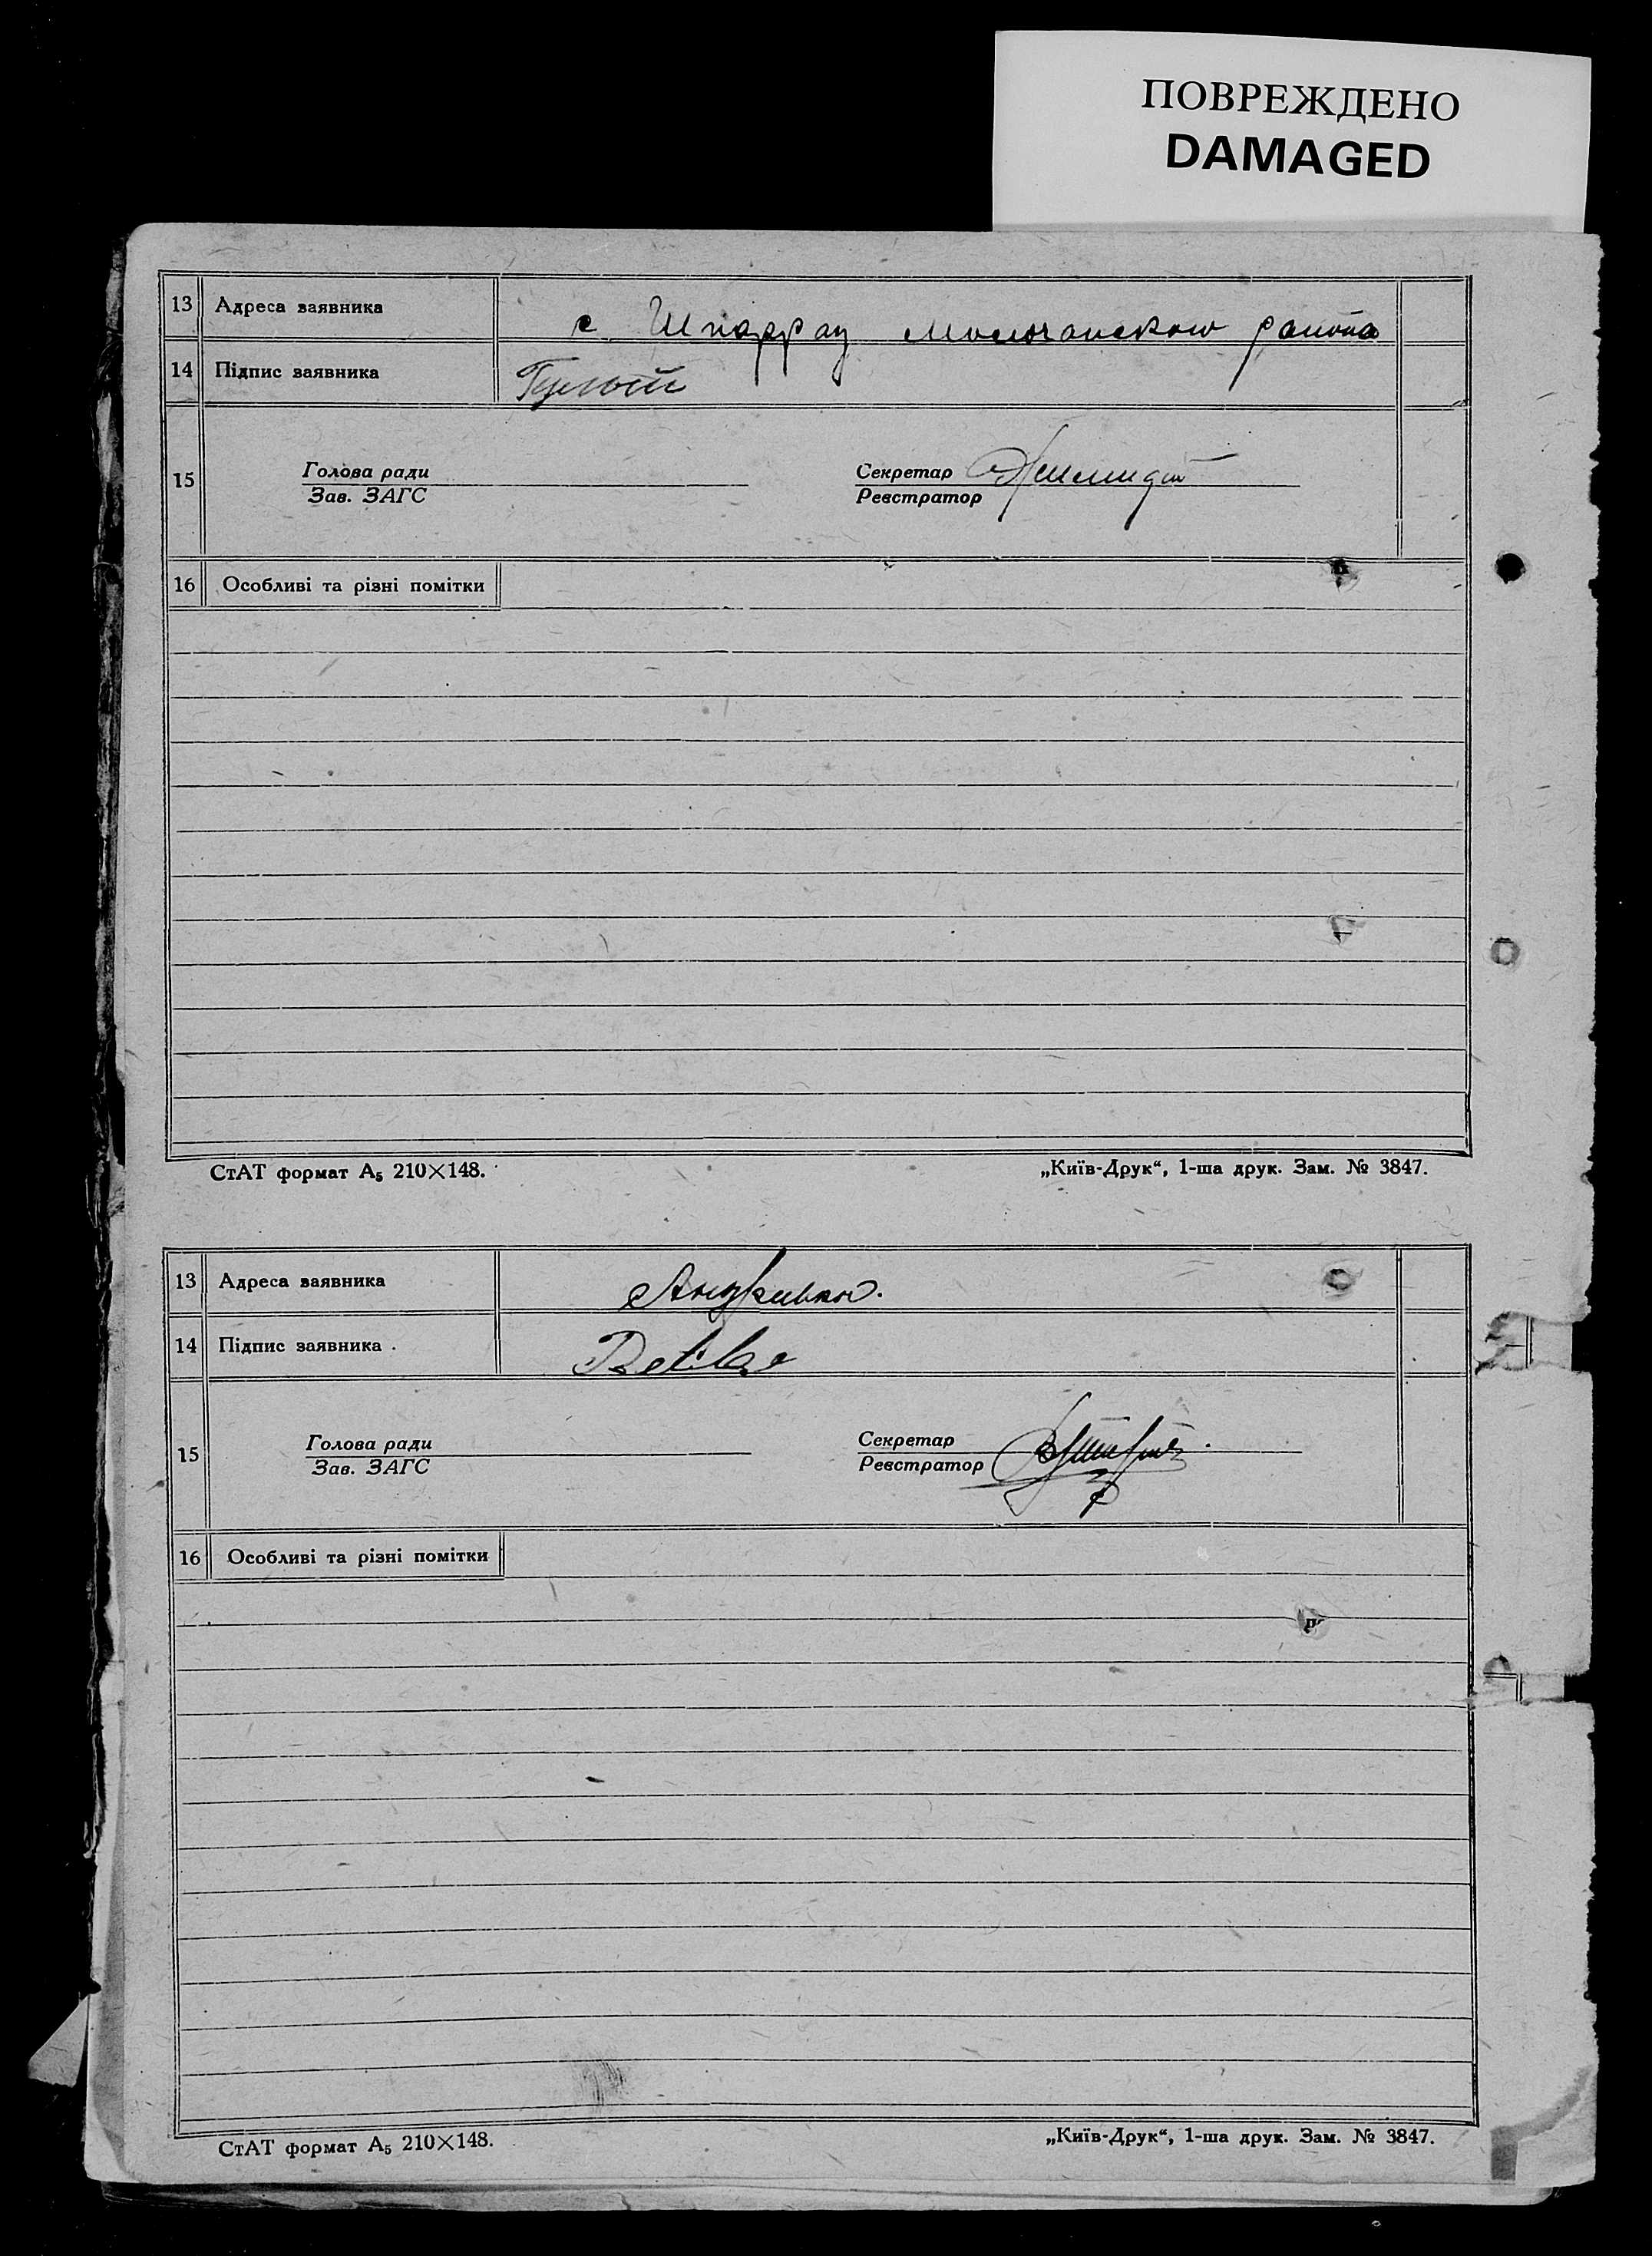 ПОВРЕЖДЕНО
DAMAGED
13 Адреса заявника с. Шпаррау Молочанского района
14 Підпис заявника
15 Голова ради Секретар
Зав. ЗАГС Реєстратор
16 Особливі та різні помітки
СтАТ формат А5 210×148. „Київ-Друк“, 1-ша друк. Зам. № 3847.
13 Адреса заявника
14 Підпис заявника
15 Голова ради Секретар
Зав. ЗАГС Реєстратор
16 Особливі та різні помітки
СтАТ формат А5 210×148. „Київ-Друк“, 1-ша друк. Зам. № 3847.